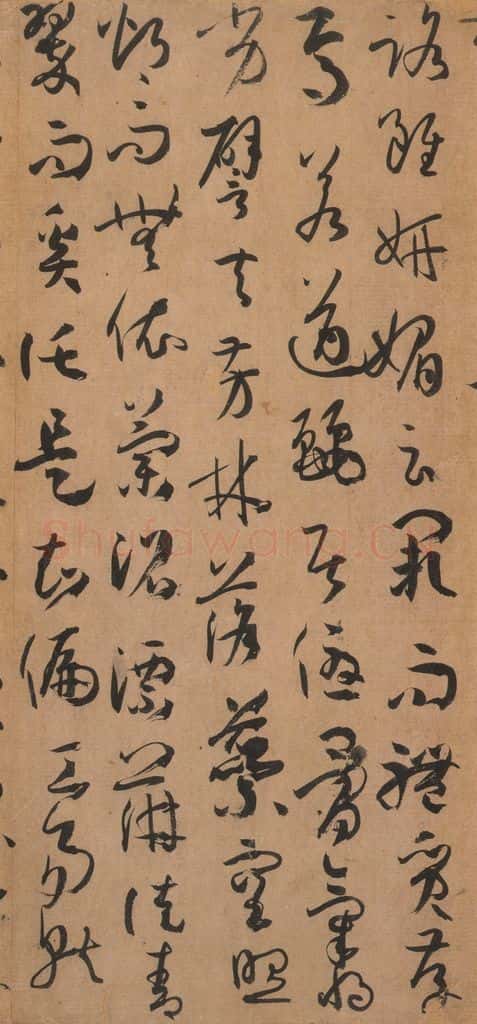 路雖妍媚云闕而體質存
焉若遒麗居優骨氣將
劣譬夫芳林落蘂空照
灼而無依蘭沼漂蓱徒青
翠而奚託是知偏工易就
Shufawang.CN